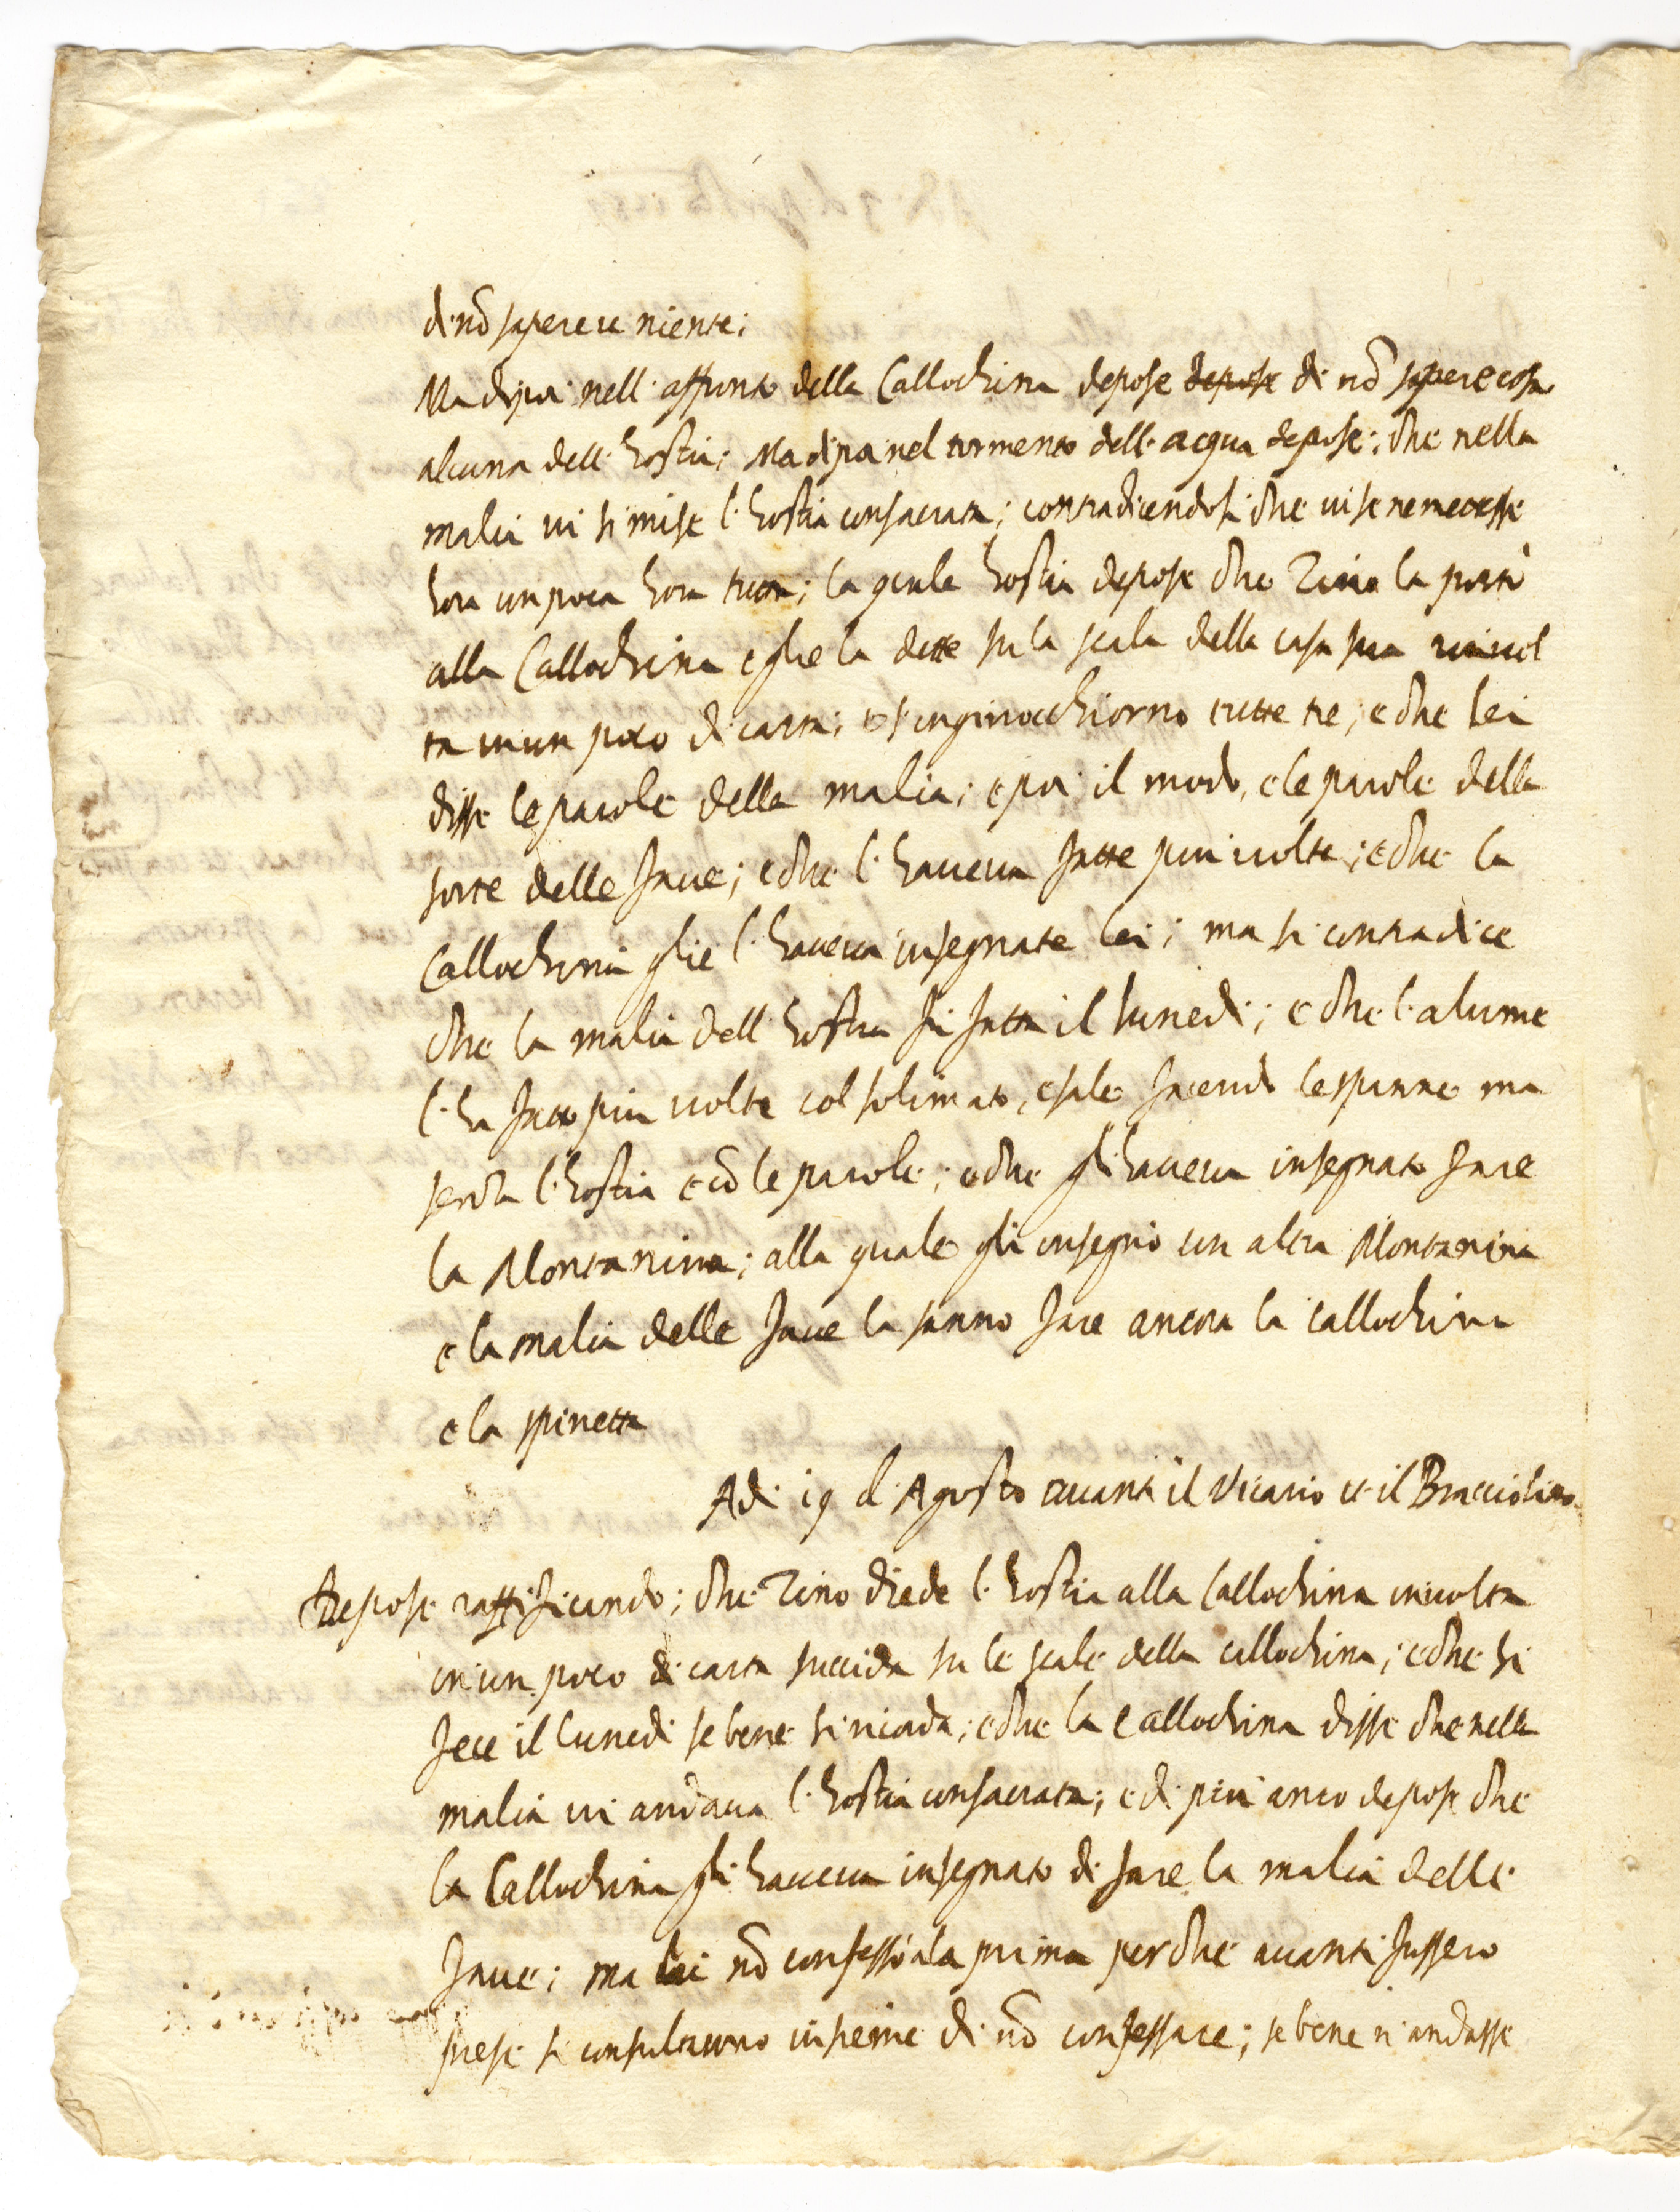 di nō sapere niente;
Ma dipoi nell'affronto della Callochina depose depose di nō sapere cosa
alcuna dell'hostia; Ma dipoi nel tormento dell'acqua depose; che nella
malia vi si mise l'hostia consacrata; contradicendosi che vi se ne mettesse
hora un poca hora tutta; la quale hostia depose che Tino la portò
alla Callochina e glie la dette su la scala della casa sua rinuol
ta in un poco di carta; e s'inginocchiorno tutte tre; e che lei
disse le parole della malia; e poi il modo, e le parole della
sorte delle faue; e che l'haueua fatte piu uolte; e che la
Callochina glie l'haueua insegnate lei; ma si contradice
che la malia dell'hostia fu fatta il lunedi; e che l'alume
l'ha fatto piu uolte col solimato, e sale facendo le spanne ma
senza l'hostia e cō le parole; e che gli haueua insegnato fare
la Montanina; alla quale gli insegnò un altra Montanina
e la malia delle faue la sanno fare ancora la Callochina
e la spinetta
Adi 19 di Agosto auanti il Vicario et il Bracciolino
Depose ratificando; che Tino diede l'hostia alla Callochina inuolta
in un poco di carta succida su le scale della callochina; e che si
fece il lunedi se bene si ricorda; e che la Callochina disse che nella
malia ui andaua l'hostia consacrata; e di piu anco depose che
la Callochina gli haueua insegnato di fare la malia delle
faue; ma lei nō confessò a la prima perche auanti fussero
prese si consultorno insieme di nō confessare; se bene n'andasse